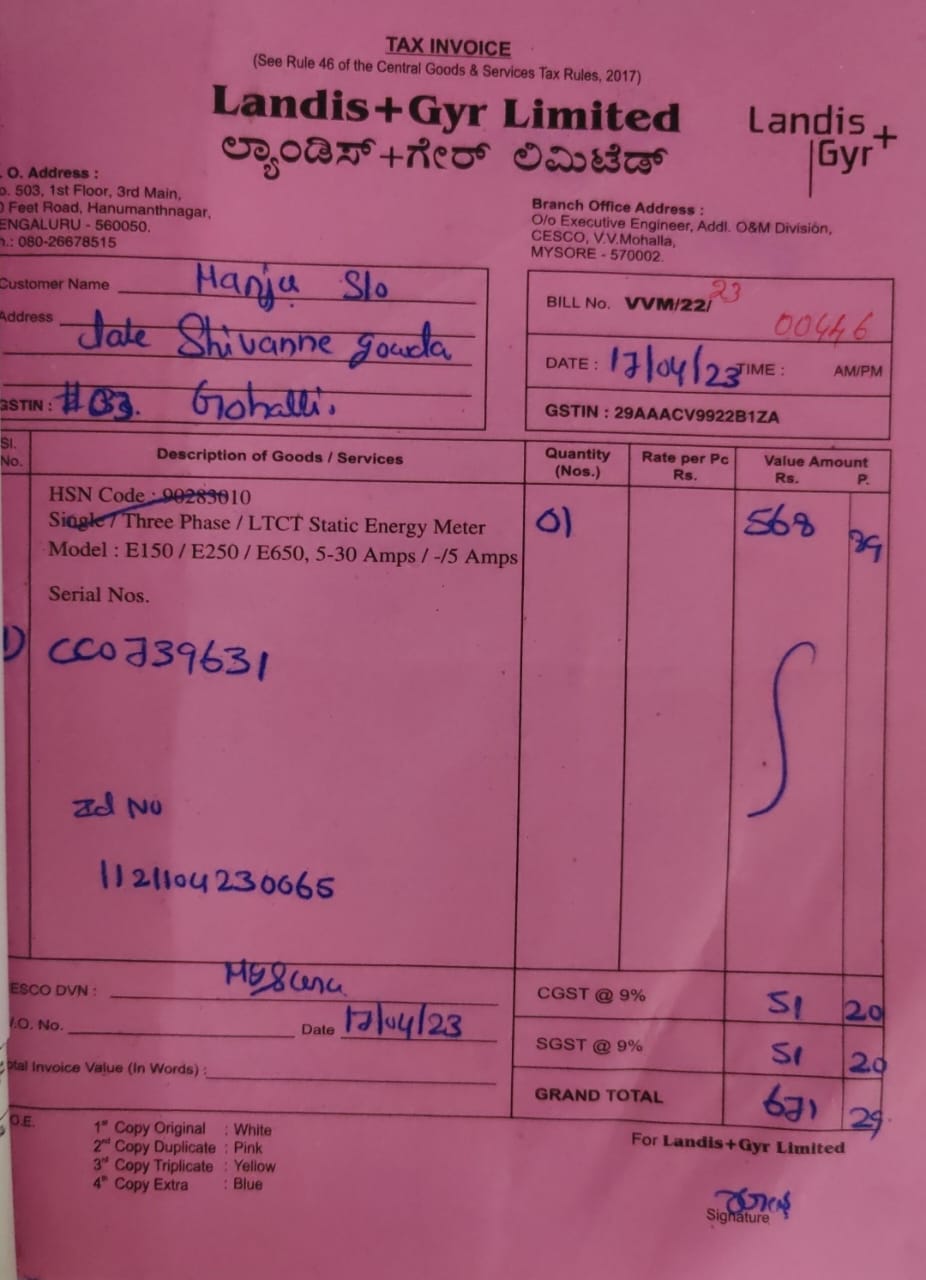 TAX INVOICE
(See Rule 46 of the Central Goods & Services Tax Rules, 2017)
Landis+Gyr Limited
ಲ್ಯಾಂಡಿಸ್+ಗೇರ್ ಲಿಮಿಟೆಡ್
Landis
Gyr+
. O. Address :
o. 503, 1st Floor, 3rd Main,
0 Feet Road, Hanumanthnagar,
ENGALURU - 560050.
h.: 080-26678515
Branch Office Address :
O/o Executive Engineer, Addl. O&M Division,
CESCO, V.V.Mohalla,
MYSORE - 570002.
Customer Name Manju S/o
Address late Shivanne gowda
GSTIN : #03. Gohalli.
BILL No. VVM/22/23
00446
DATE : 17/04/23 TIME : AM/PM
GSTIN : 29AAACV9922B1ZA
Sl. No. Description of Goods / Services Quantity (Nos.) Rate per Pc Rs. Value Amount Rs. P.
HSN Code : 90283010
Single / Three Phase / LTCT Static Energy Meter 01 568 89
Model : E150 / E250 / E650, 5-30 Amps / -/5 Amps
Serial Nos.
1) CC0739631
No
1121104230665
ESCO DVN :
.O. No. Date 17/04/23
otal Invoice Value (In Words) :
CGST @ 9% 51 20
SGST @ 9% 51 20
GRAND TOTAL 671 29
O.E.
1st Copy Original : White
2nd Copy Duplicate : Pink
3rd Copy Triplicate : Yellow
4th Copy Extra : Blue
For Landis+Gyr Limited
Signature